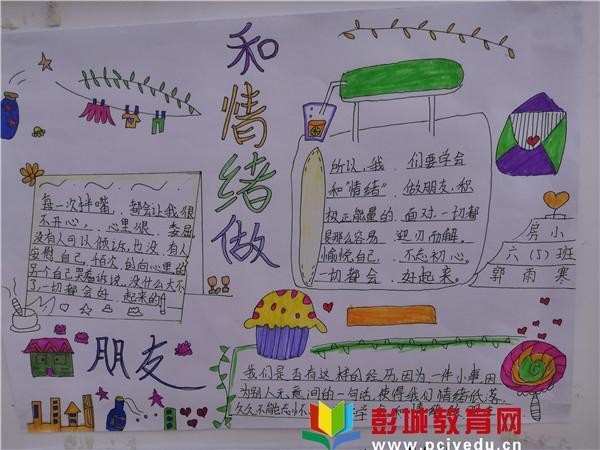 和情绪做
朋友
每一次拌嘴，都会让我很
不开心，心里很委屈
没有人可以倾诉，也没有人
安慰自己，
的向心里的
另个自己哭着诉说，没什么大不
了一切都会好起来的！
所以，我们要学会
和“情绪”做朋友，积
极正能量的面对一切都
是那么容易迎刃而解。
愉悦自己，不忘初心。
一切都会好起来。
房小
六（5）班
郭雨寒
我们是否有这样的经历，因为一件小事，因
为别人无意间的一句话，使得我们情绪低落，
久久不能忘怀
学
和情绪
彭城教育网
www.pcivedu.cn